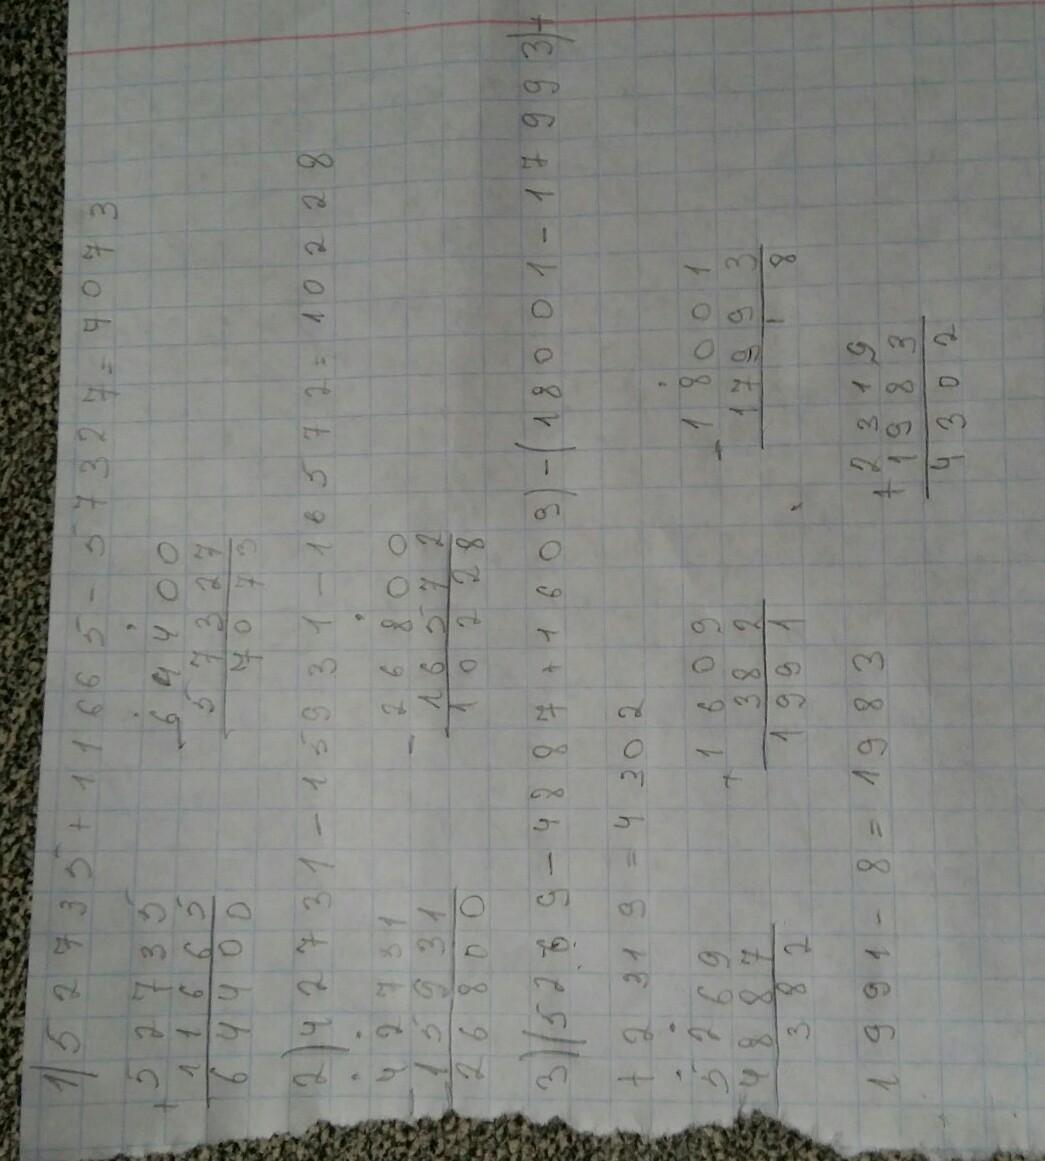 1) 52735+11665-57327=7073
+52735
11665
64400
-64400
57327
7073
2) 42731-15931-16572=10228
-42731
15931
26800
-26800
16572
10228
3) (5269-4887+1609)-(18001-17993)+
+2319=4302
-5269
4887
382
+1609
382
1991
-18001
17993
8
1991-8=1983
+2319
1983
4302